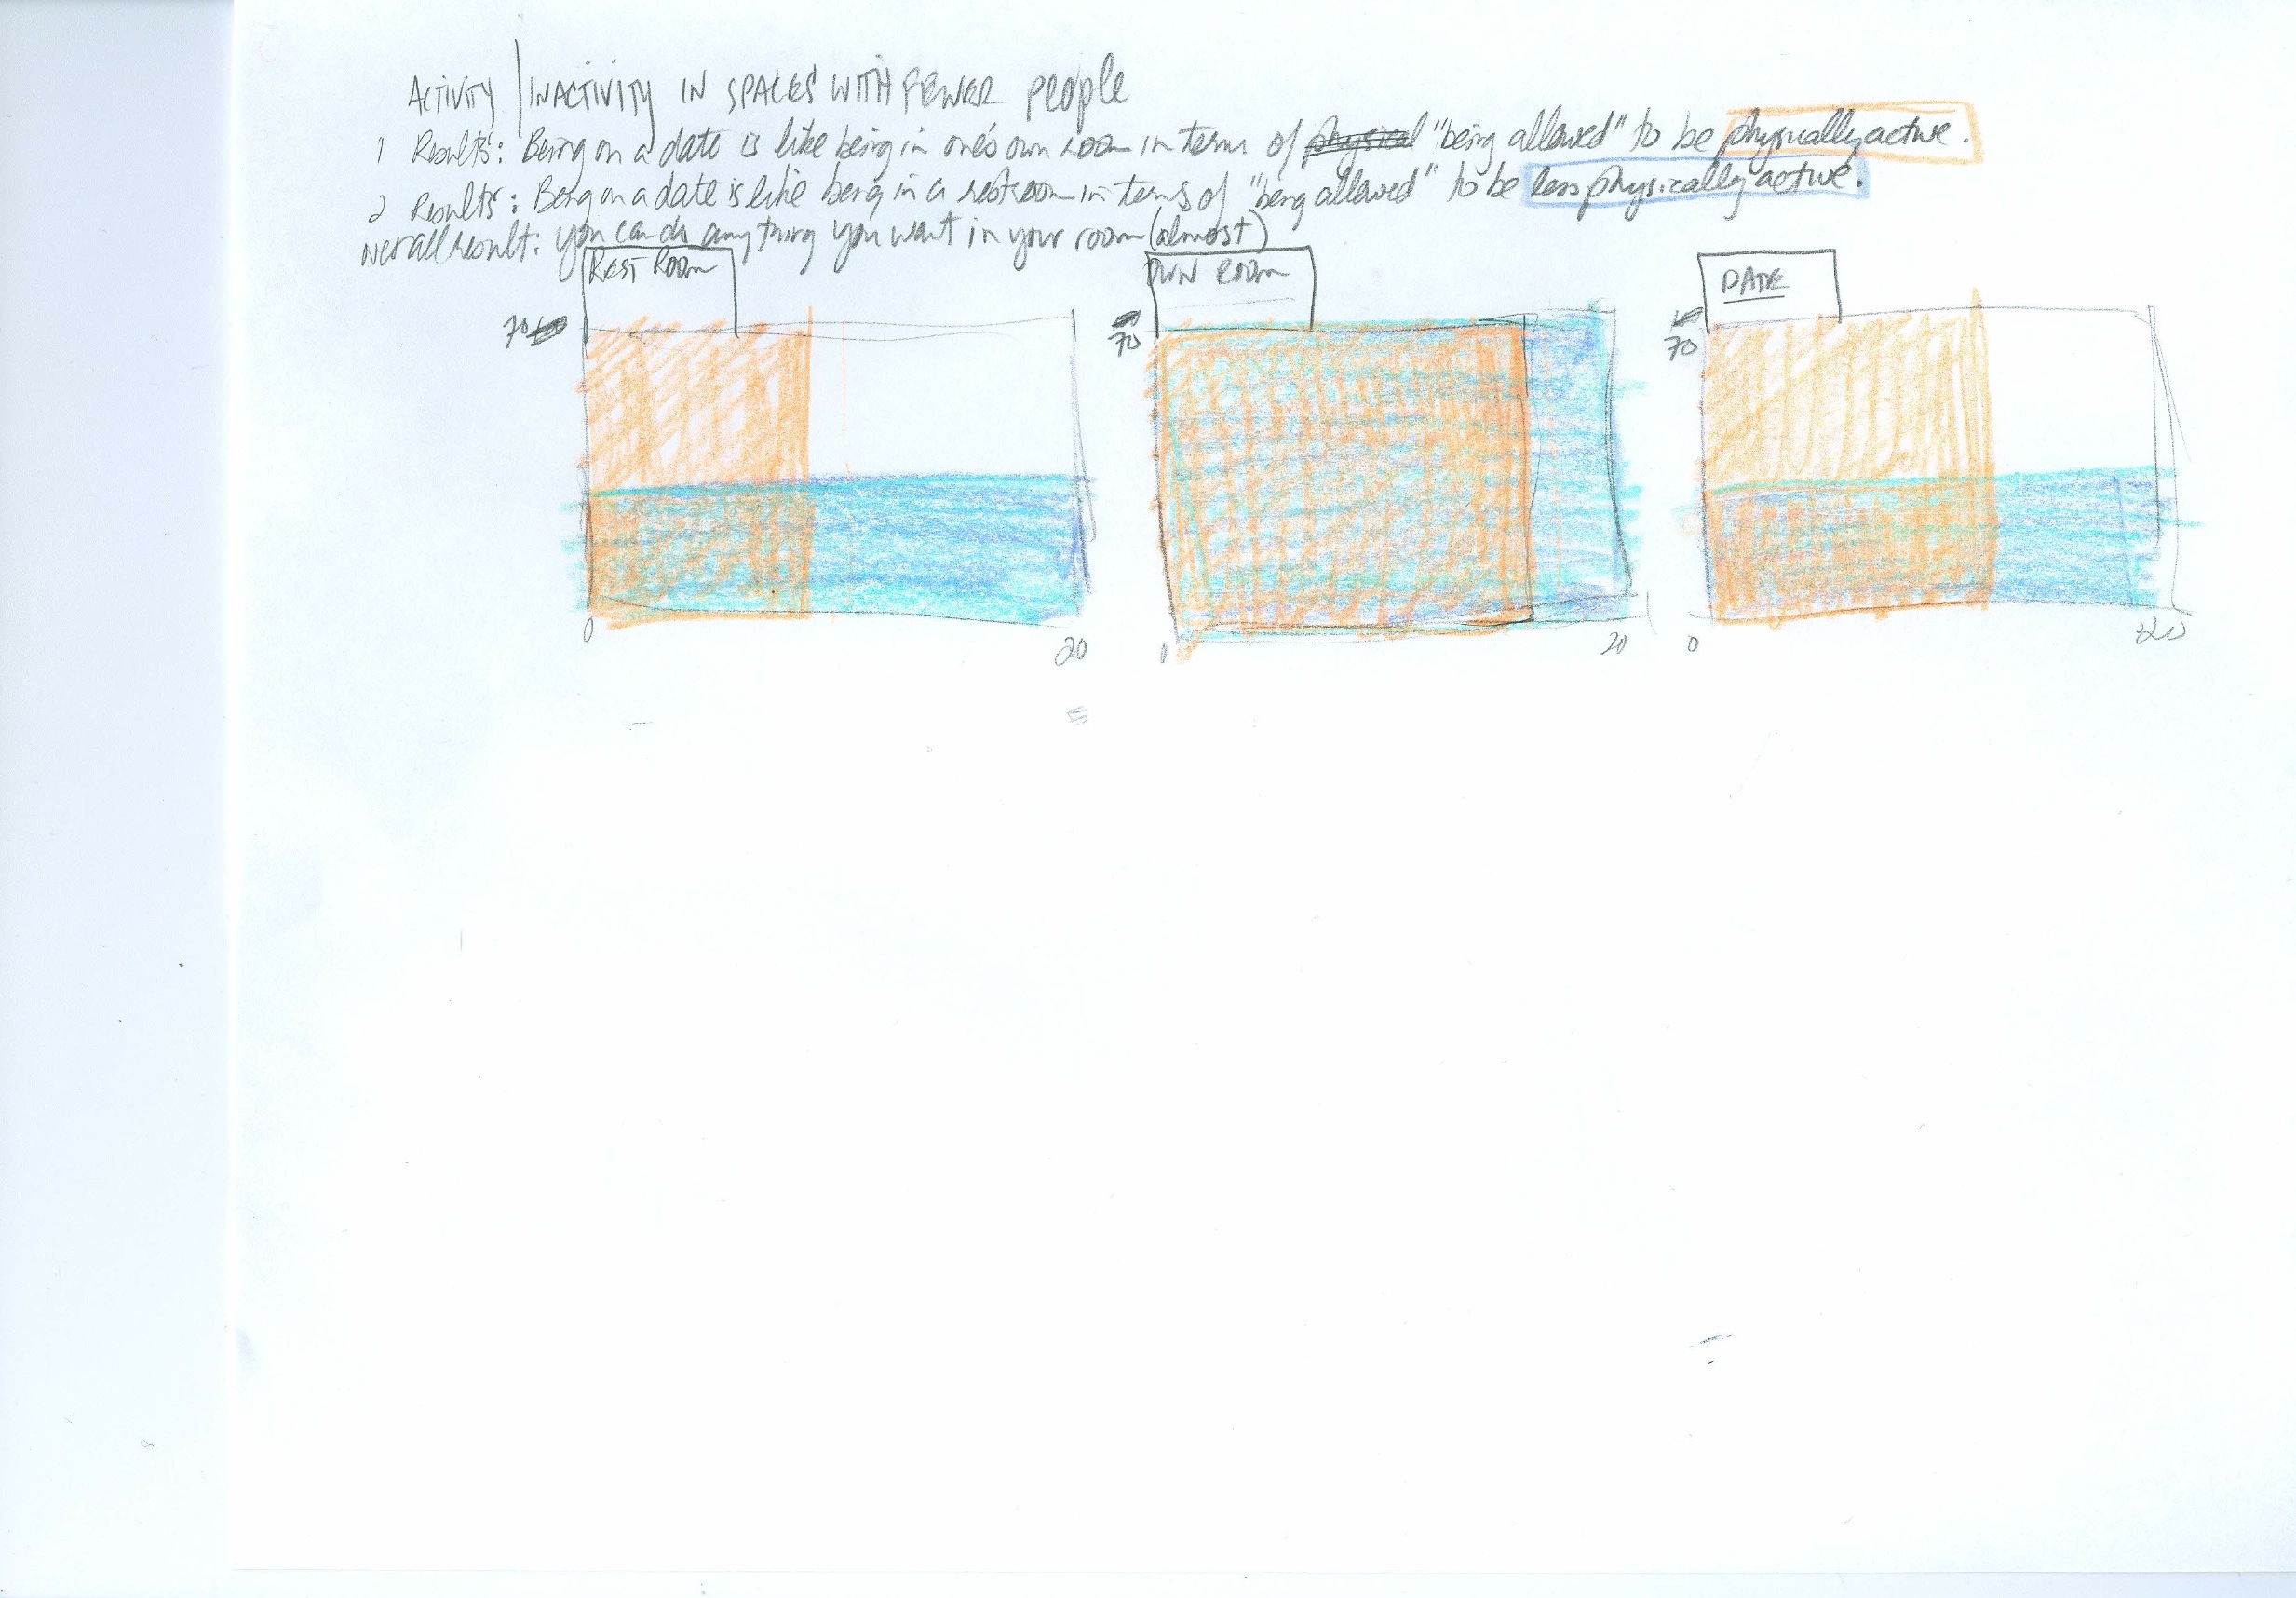 ACTIVITY / INACTIVITY IN SPACES WITH FEWER People
1 Results: Being on a date is like being in one's own room in terms of physical "being allowed" to be physically active.
2 Results: Being on a date is like being in a restroom in terms of "being allowed" to be less physically active.
Overall result: you can do anything you want in your room (almost)
REST ROOM
OWN ROOM
DATE
70
70
70
0
20
0
20
0
20